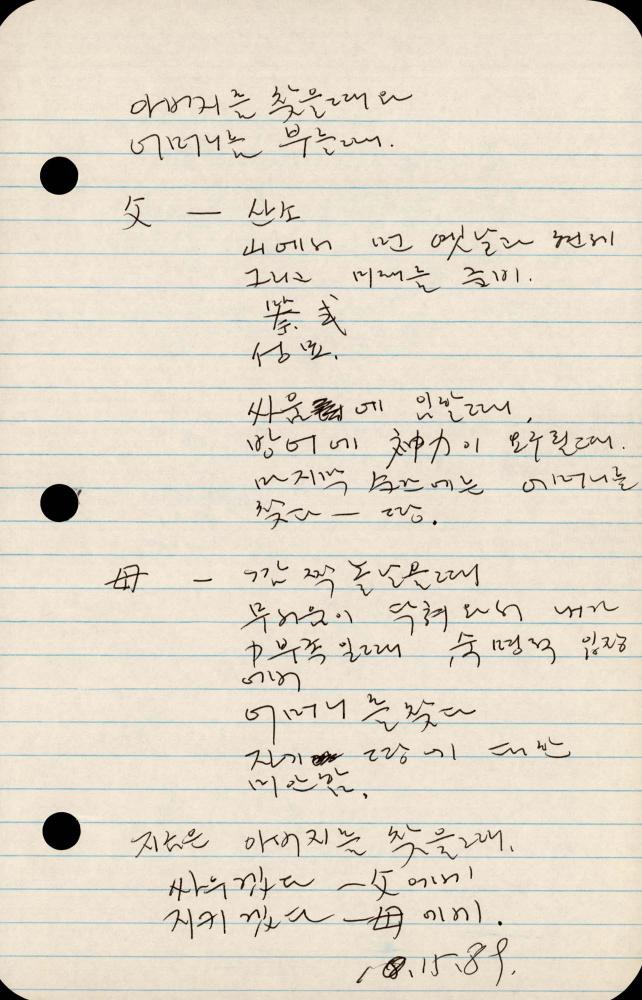 아버지를 찾을때와
어머니를 부를때.
父 — 산소
山에서 먼 옛날과 현재
그리고 미래를 줍이.
祭式
성묘.
싸움에 임할때,
방어에 神力이 모자랄때.
마지막 순간에는 어머니를
찾다 — 땅.
母 — 깜짝 놀났을때
무서움이 닥쳐와서 내가
力부족일때 숙명적 입장
에서
어머니를 찾다
자기 땅에 대한
미안함.
지금은 아버지를 찾을때.
싸우겠다 — 父에게
지키겠다 — 母에게.
15.89.